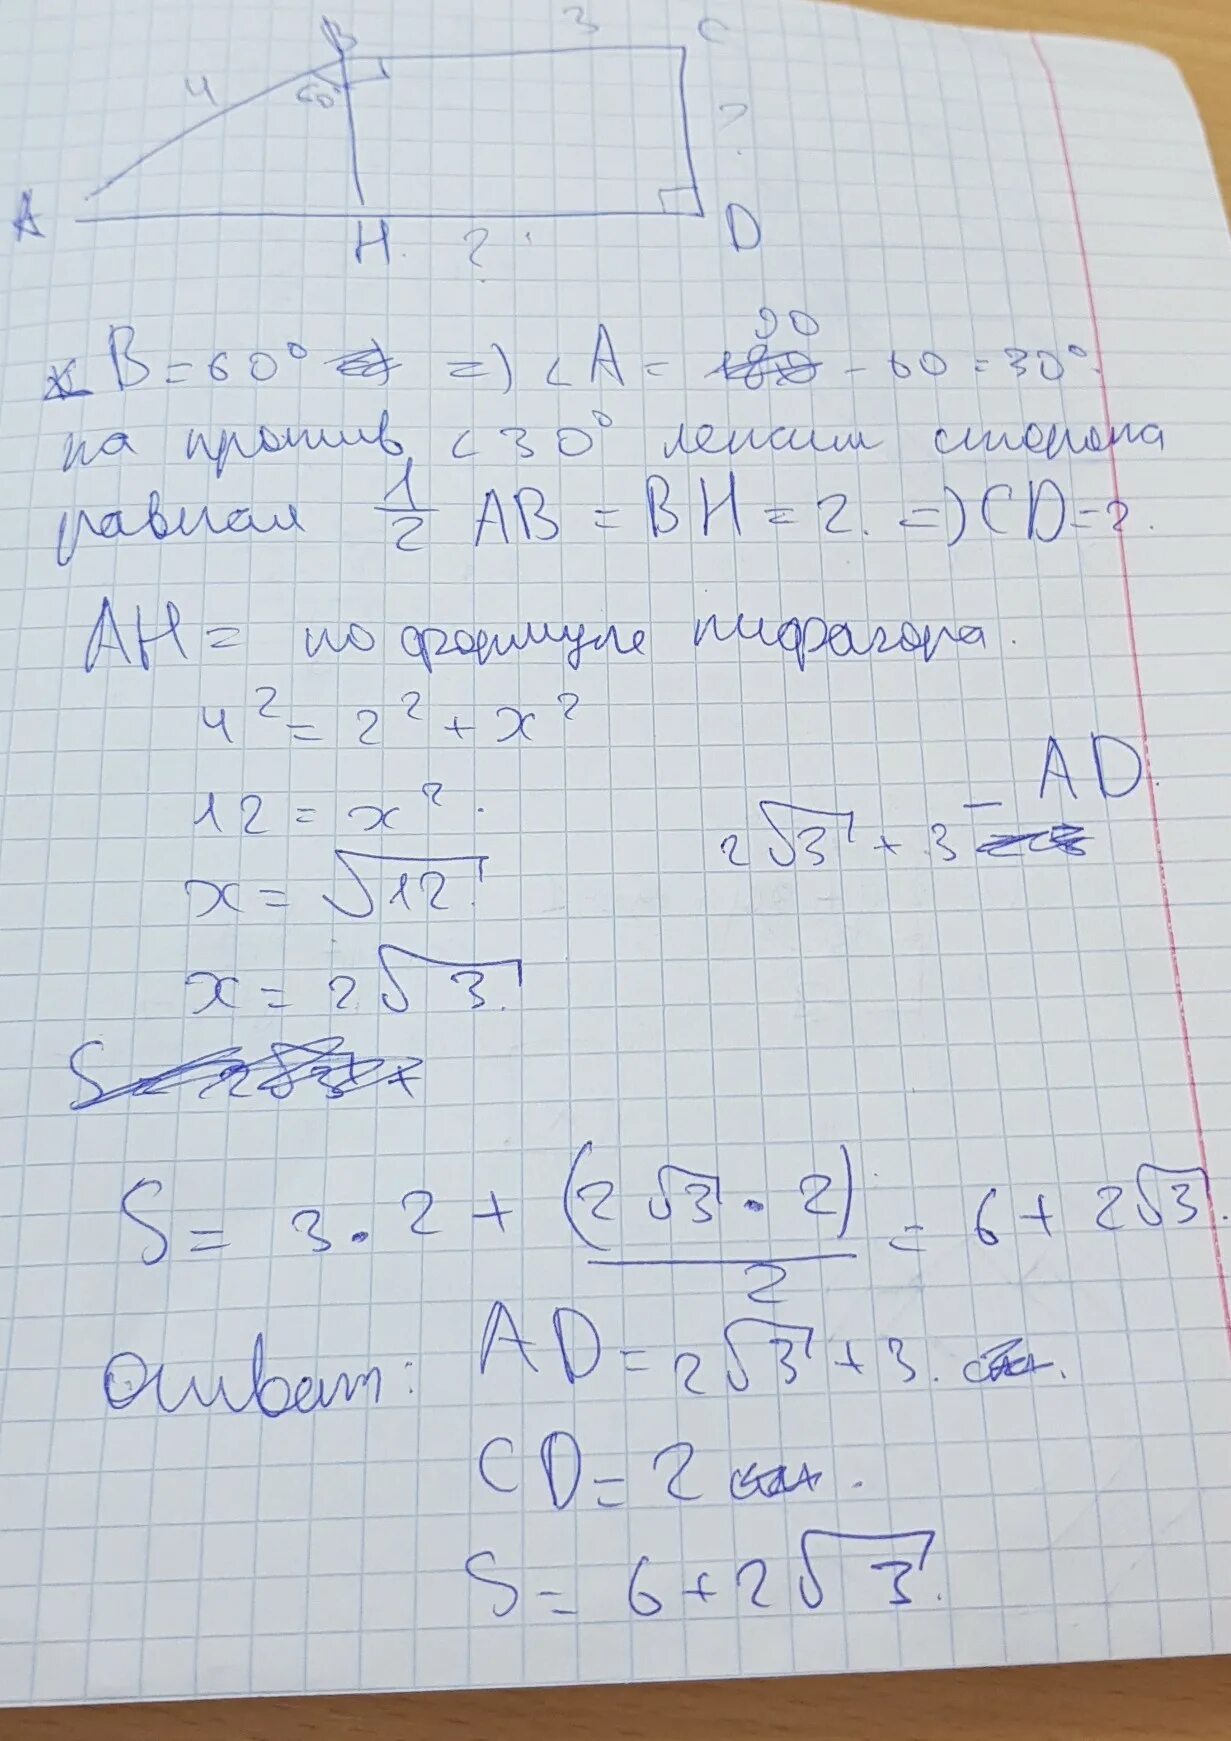 B 3 C
4 60° ?
A H. ? D
B = 60° => <A = 90 - 60 = 30°.
на против <30° лежит сторона
равная 1/2 AB = BH = 2. => CD = 2.
AH = по формуле пифагора.
4² = 2² + x²
12 = x².
2√3 + 3 = AD.
x = √12
x = 2√3.
S = 3 · 2 + (2√3 · 2)/2 = 6 + 2√3.
Ответ: AD = 2√3 + 3.
CD = 2 .
S = 6 + 2√3.